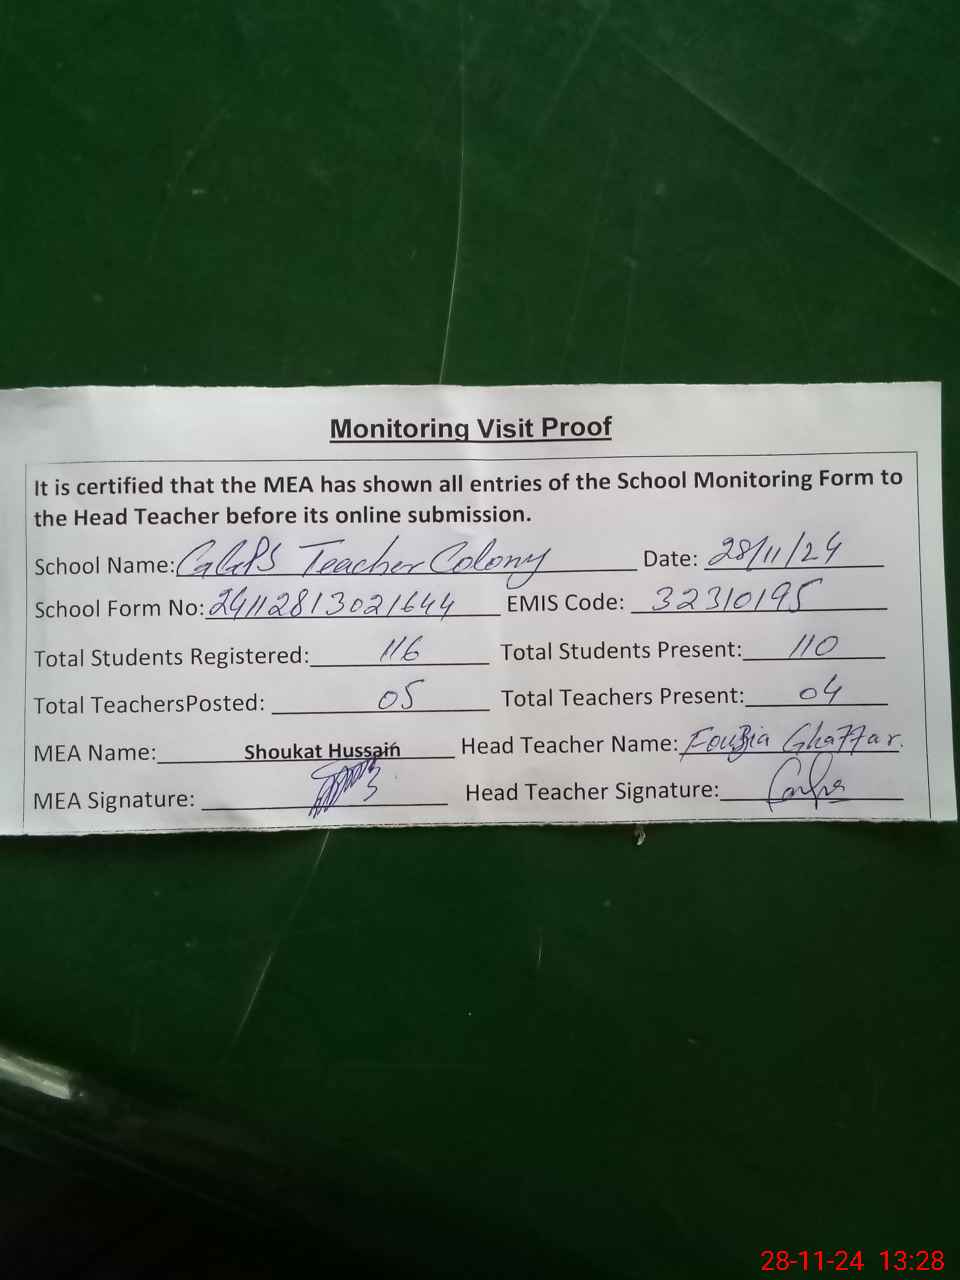 Monitoring Visit Proof
It is certified that the MEA has shown all entries of the School Monitoring Form to
the Head Teacher before its online submission.
School Name: GGPS Teacher Colony Date: 28/11/24
School Form No: 24112813021644 EMIS Code: 32310195
Total Students Registered: 116 Total Students Present: 110
Total TeachersPosted: 05 Total Teachers Present: 04
MEA Name: Shoukat Hussain Head Teacher Name: Fouzia Ghaffar.
MEA Signature: Head Teacher Signature:
28-11-24 13:28